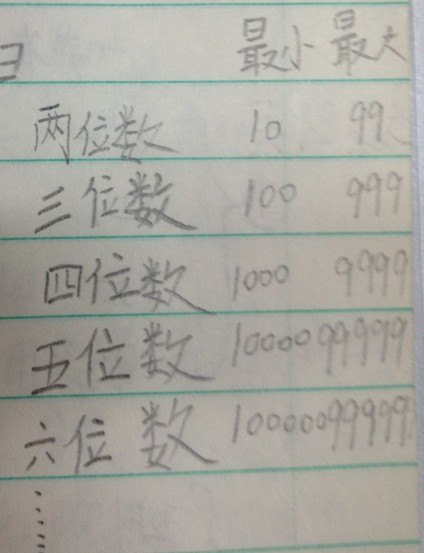 最小 最大
两位数 10 99
三位数 100 999
四位数 1000 9999
五位数 10000 99999
六位数 100000 99999